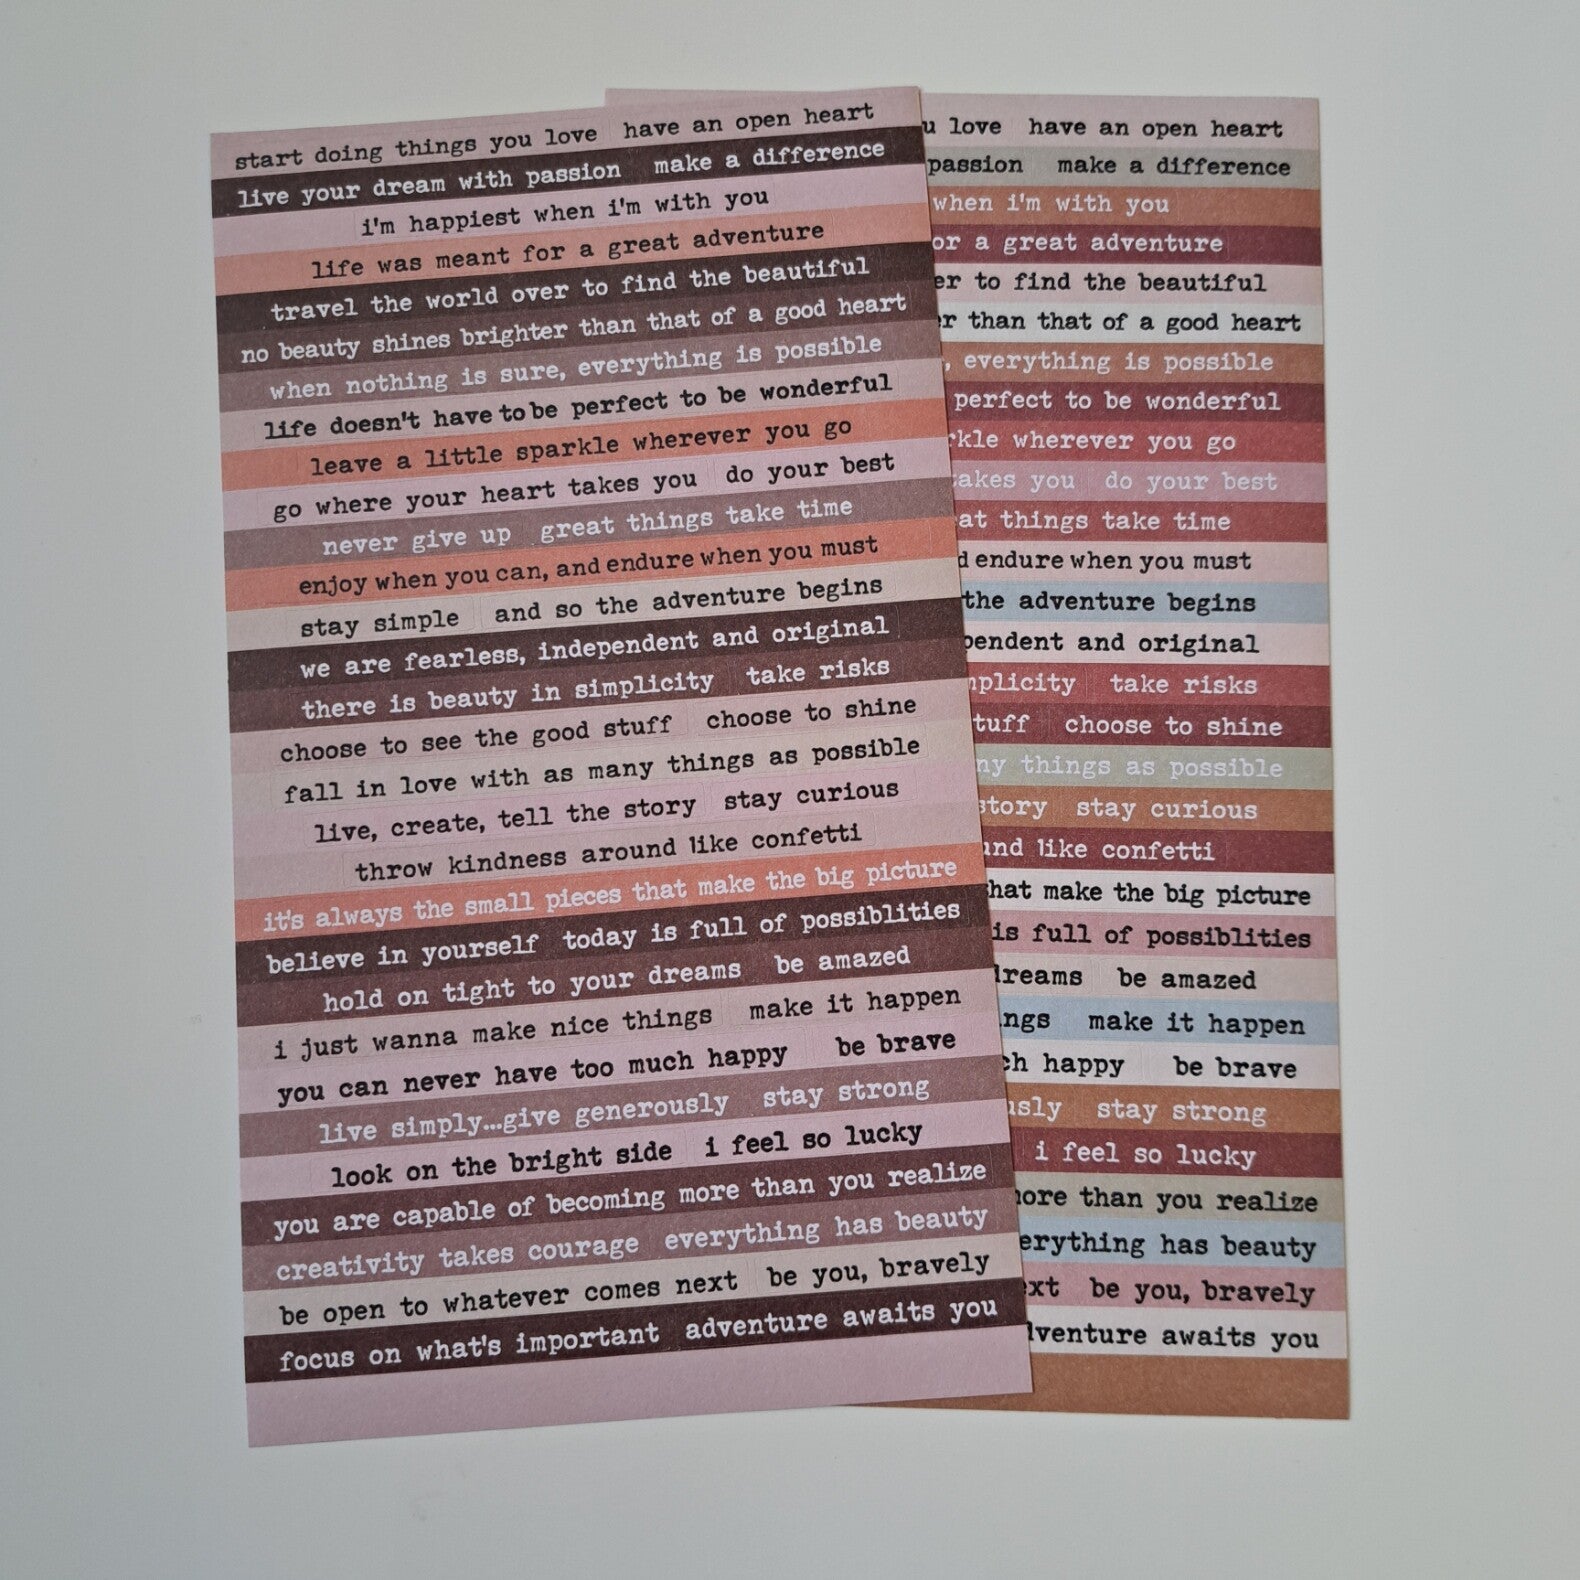 start doing things you love have an open heart
live your dream with passion make a difference
i'm happiest when i'm with you
life was meant for a great adventure
travel the world over to find the beautiful
no beauty shines brighter than that of a good heart
when nothing is sure, everything is possible
life doesn't have to be perfect to be wonderful
leave a little sparkle wherever you go
go where your heart takes you do your best
never give up great things take time
enjoy when you can, and endure when you must
stay simple and so the adventure begins
we are fearless, independent and original
there is beauty in simplicity take risks
choose to see the good stuff choose to shine
fall in love with as many things as possible
live, create, tell the story stay curious
throw kindness around like confetti
it's always the small pieces that make the big picture
believe in yourself today is full of possiblities
hold on tight to your dreams be amazed
i just wanna make nice things make it happen
you can never have too much happy be brave
live simply...give generously stay strong
look on the bright side i feel so lucky
you are capable of becoming more than you realize
creativity takes courage everything has beauty
be open to whatever comes next be you, bravely
focus on what's important adventure awaits you
u love have an open heart
passion make a difference
when i'm with you
or a great adventure
er to find the beautiful
er than that of a good heart
, everything is possible
perfect to be wonderful
rkle wherever you go
takes you do your best
at things take time
d endure when you must
the adventure begins
pendent and original
mplicity take risks
tuff choose to shine
ny things as possible
story stay curious
und like confetti
that make the big picture
is full of possiblities
dreams be amazed
ngs make it happen
ch happy be brave
usly stay strong
i feel so lucky
more than you realize
erything has beauty
ext be you, bravely
dventure awaits you